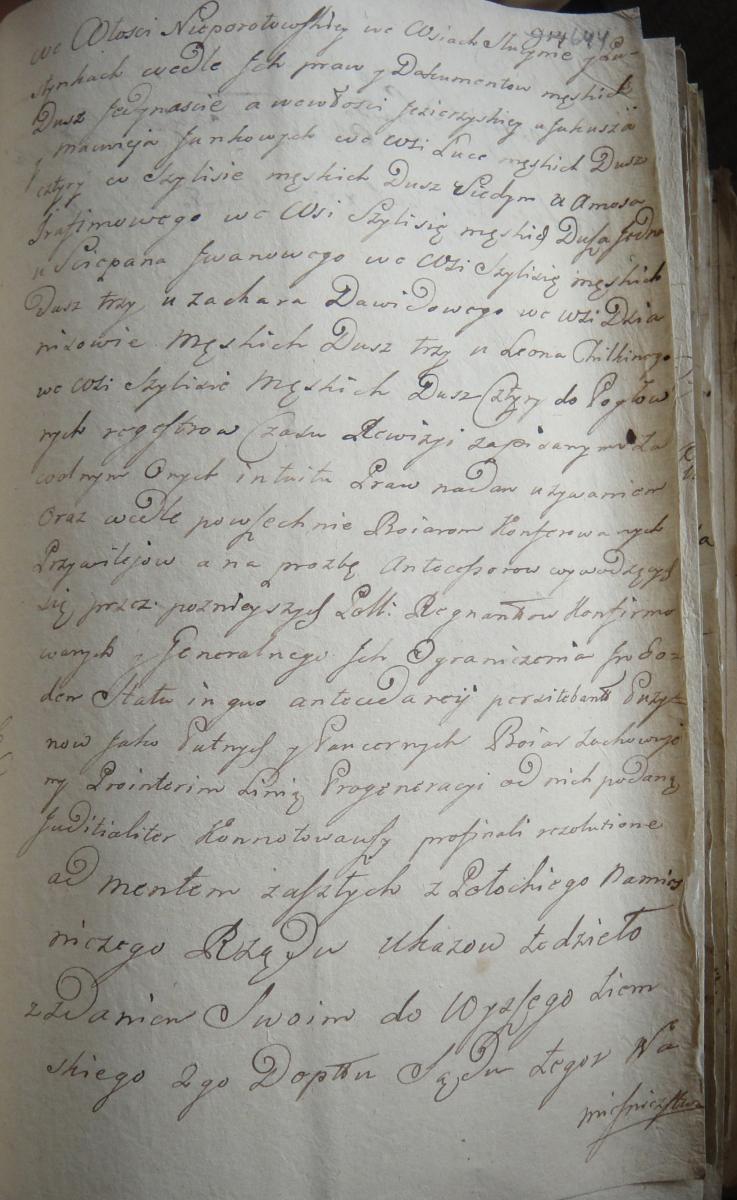 644
we Włosci Nieporotowskiey we Wsiach Studynie y Pu-
stynkach wedle Jch praw y Dokumentow męskich
Dusz Jedynascie a we włości Jezierzyskiey u Jakusza
y Macwieja Junkowych we wsi Luce męskich Dusz
cztyry w Szylisie męskich Dusz Siedym u Amosa
Trafimowego we Wsi Szylisię męskich Dusza Jedna
u Sciepana Jwanowego we Wsi Szylisię męskich
Dusz trzy u Zachara Dawidowego we wsi Dzia
nisowie Męskich Dusz trzy u Leona Chilkinego
we Wsi Szylisie Męskich Dusz Cztyry do Pogłow
nych regestrow Czasu Rewizyi zapisanym za
wolnym Onych intuitu Praw nadan używaniem
Oraz wedle powszechnie Boiarom Konferowanych
Przywilejow a na prozbę Antecessorow wywodzących
się przez poznieyszych Polł: Regnantow Konfirmo
wanych y Generalnego Jch Ograniczenia
den Statu in quo antecedaneij persitebant
now Jako Putnych y Pancernych Boiar Zachowuje
my Prointerim Linią Progeneracyi od nich podaną
Juditialiter Konnotowawszy profinali rezolutione
ad mentem zaszłych z Połockiego Namies
niczego Rządu Ukazow te dzieło
z zdaniem Swoim do Wyższego Ziem
skiego 2go Depttu Sądu tegoż Na
miesniczstwa